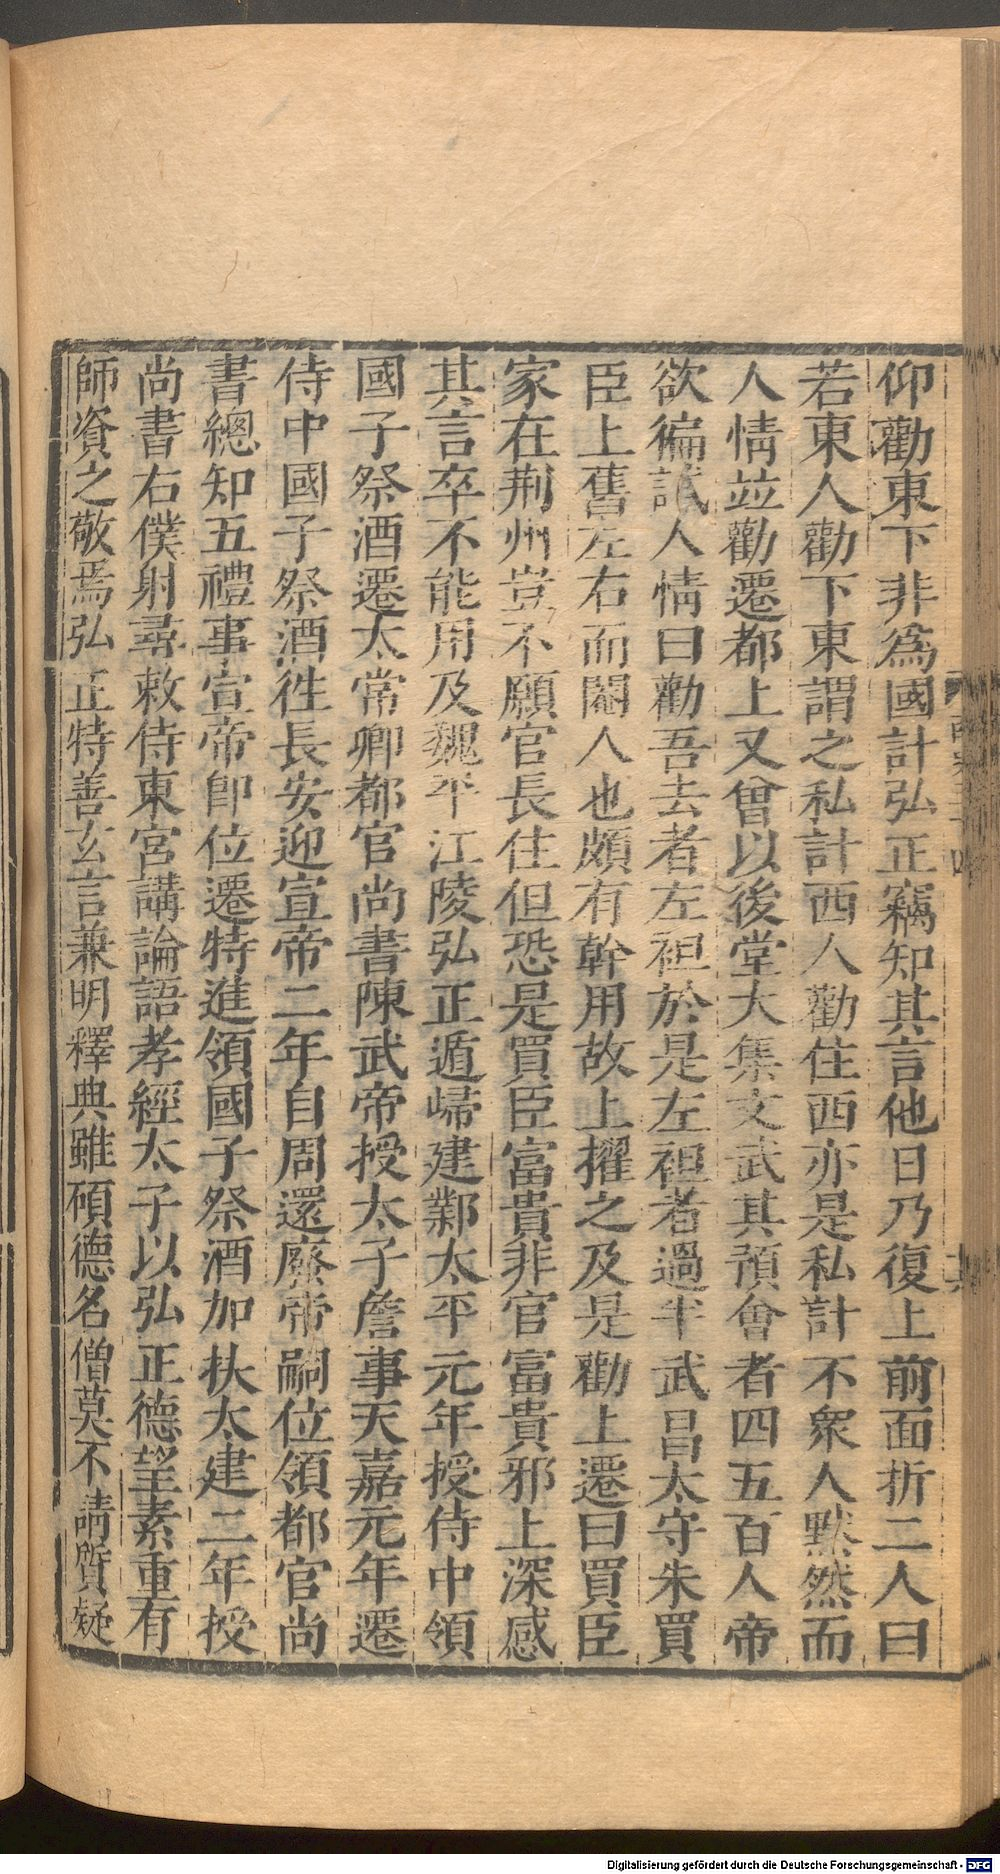 仰勸東下非爲國計弘正竊知其言他日乃復上前面折二人曰
若東人勸下東謂之私計西人勸住西亦是私計不衆人默然而
人情並勸遷都上又曾以後堂大集文武其預會者四五百人帝
欲徧試人情曰勸吾去者左袒於是左袒者過半武昌太守朱買
臣上舊左右而閹人也頗有幹用故上擢之及是勸上遷曰買臣
家在荆州豈不願官長住但恐是買臣富貴非官富貴邪上深感
其言卒不能用及魏平江陵弘正遁歸建鄴太平元年授侍中領
國子祭酒遷太常卿都官尚書陳武帝授太子詹事天嘉元年遷
侍中國子祭酒徃長安迎宣帝二年自周還廢帝嗣位領都官尚
書總知五禮事宣帝卽位遷特進領國子祭酒加扶太建二年授
尚書右僕射尋敕侍東宮講論語孝經太子以弘正德望素重有
師資之敬焉弘正特善玄言兼明釋典雖碩德名僧莫不請質疑
Digitalisierung gefördert durch die Deutsche Forschungsgemeinschaft - DFG